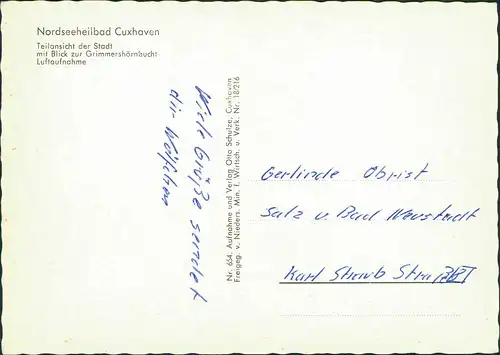 Nordseeheilbad Cuxhaven
Teilansicht der Stadt
mit Blick zur Grimmershörnbucht
Luftaufnahme
Viele Grüße sendet
die Wölfchen
Nr. 654. Aufnahme und Verlag Otto Schulze, Cuxhaven
Freigeg. v. Nieders. Min. f. Wirtsch. u. Verk. Nr. 18/216
Gerlinde Obrist
Salz v. Bad Neustadt
Karl Straub Straße